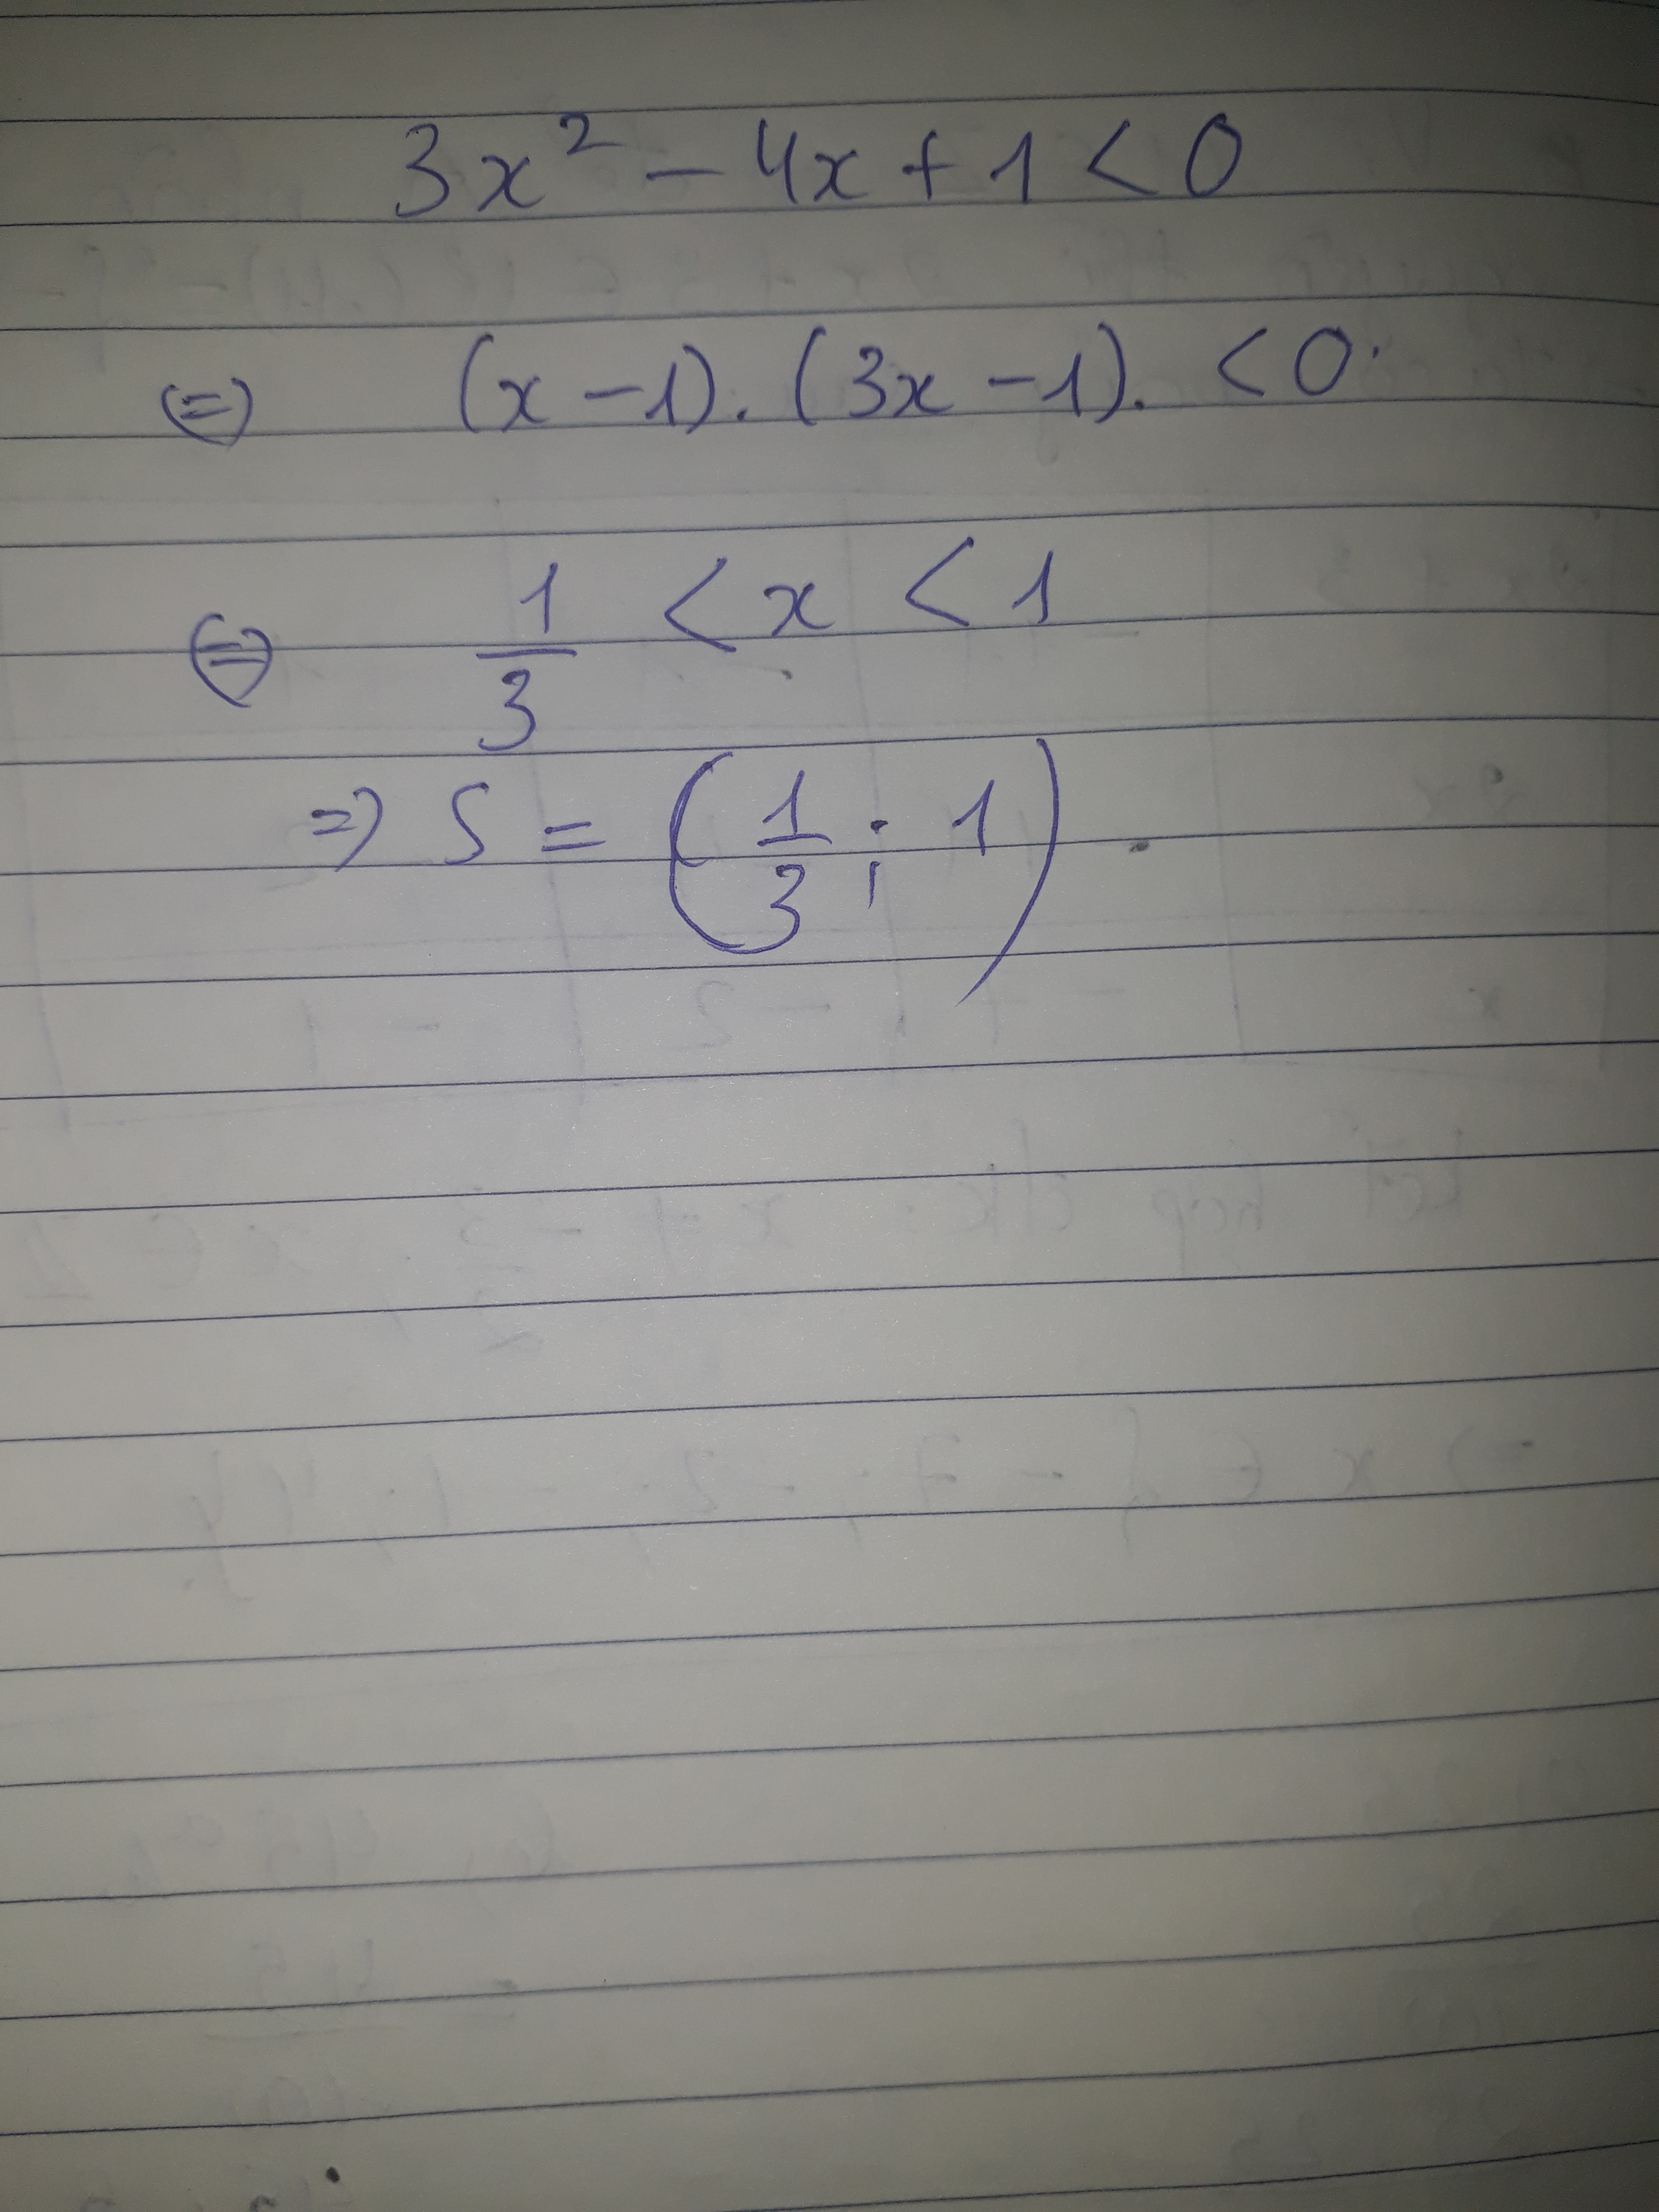 3x² - 4x + 1 < 0
⇔ (x - 1). (3x - 1). < 0.
⇔ 1/3 < x < 1
⇒ S = (1/3 ; 1).